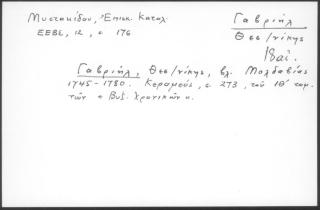 Μυστακίδου, Ἐπισκ. Καταλ.
ΕΕΒΣ, 12, σ 176
Γαβριήλ
Θεσ/νίκης
18αἰ.
Γαβριήλ, Θεσ/νίκης, βλ. Μολδαβίας
1745-1780. Κεραμεύς, σ 273, τοῦ ΙΘ' τομ.
τῶν « Βυζ. Χρονικῶν ».